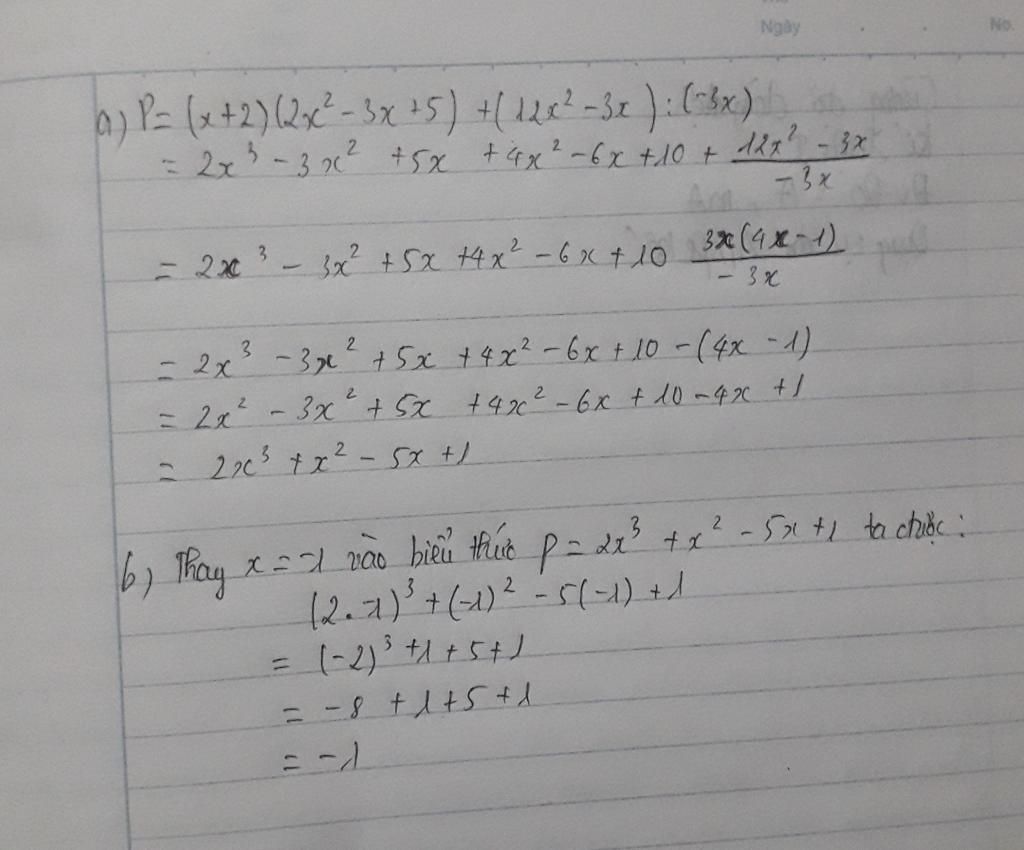 Ngày
No.
a) P = (x+2)(2x² - 3x + 5) + (12x² - 3x) : (-3x)
= 2x³ - 3x² + 5x + 4x² - 6x + 10 + (12x² - 3x)/(-3x)
= 2x³ - 3x² + 5x + 4x² - 6x + 10 3x(4x - 1)/(-3x)
= 2x³ - 3x² + 5x + 4x² - 6x + 10 - (4x - 1)
= 2x² - 3x² + 5x + 4x² - 6x + 10 - 4x + 1
= 2x³ + x² - 5x + 1
b) Thay x = -1 vào biểu thức P = 2x³ + x² - 5x + 1 ta được:
(2.-1)³ + (-1)² - 5(-1) + 1
= (-2)³ + 1 + 5 + 1
= -8 + 1 + 5 + 1
= -1